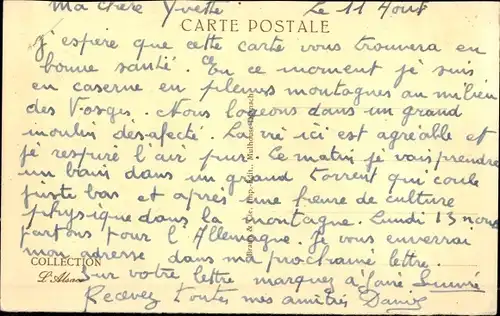 Ma chère Yvette Le 11 Aout
CARTE POSTALE
J'espère que cette carte vous trouvera en
bonne santé. En ce moment je suis
en caserne en pleines montagnes au milieu
des Vosges. Nous logeons dans un grand
moulin desafecté. La vie ici est agréable et
je respire l'air pur. Le matin je vais prendre
un bain dans un grand torrent qui coule
juste bas et après une heure de culture
physique dans la montagne. Lundi 13 nous
partons pour l'Allemagne. Je vous enverrai
mon adresse dans ma prochaine lettre.
COLLECTION
L'Alsace
Sur votre lettre marquez à faire Suivre
Recevez toutes mes amitiés
Imp.-Edit. Mulhouse